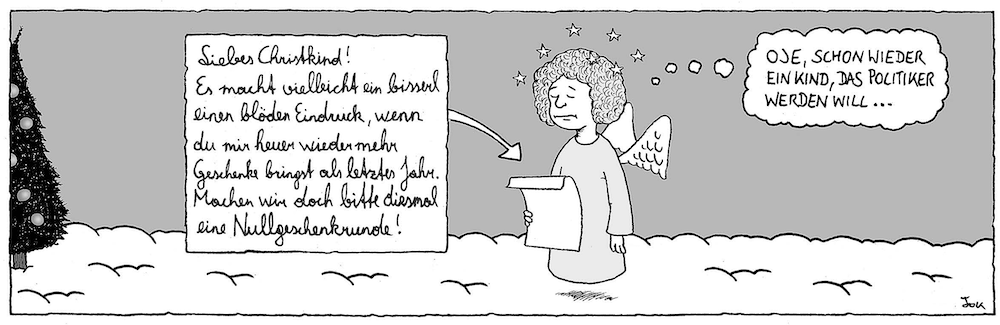 Liebes Christkind!
Es macht vielleicht ein bisserl
einen blöden Eindruck, wenn
du mir heuer wieder mehr
Geschenke bringst als letztes Jahr.
Machen wir doch bitte diesmal
eine Nullgeschenkrunde!
OJE, SCHON WIEDER
EIN KIND, DAS POLITIKER
WERDEN WILL...